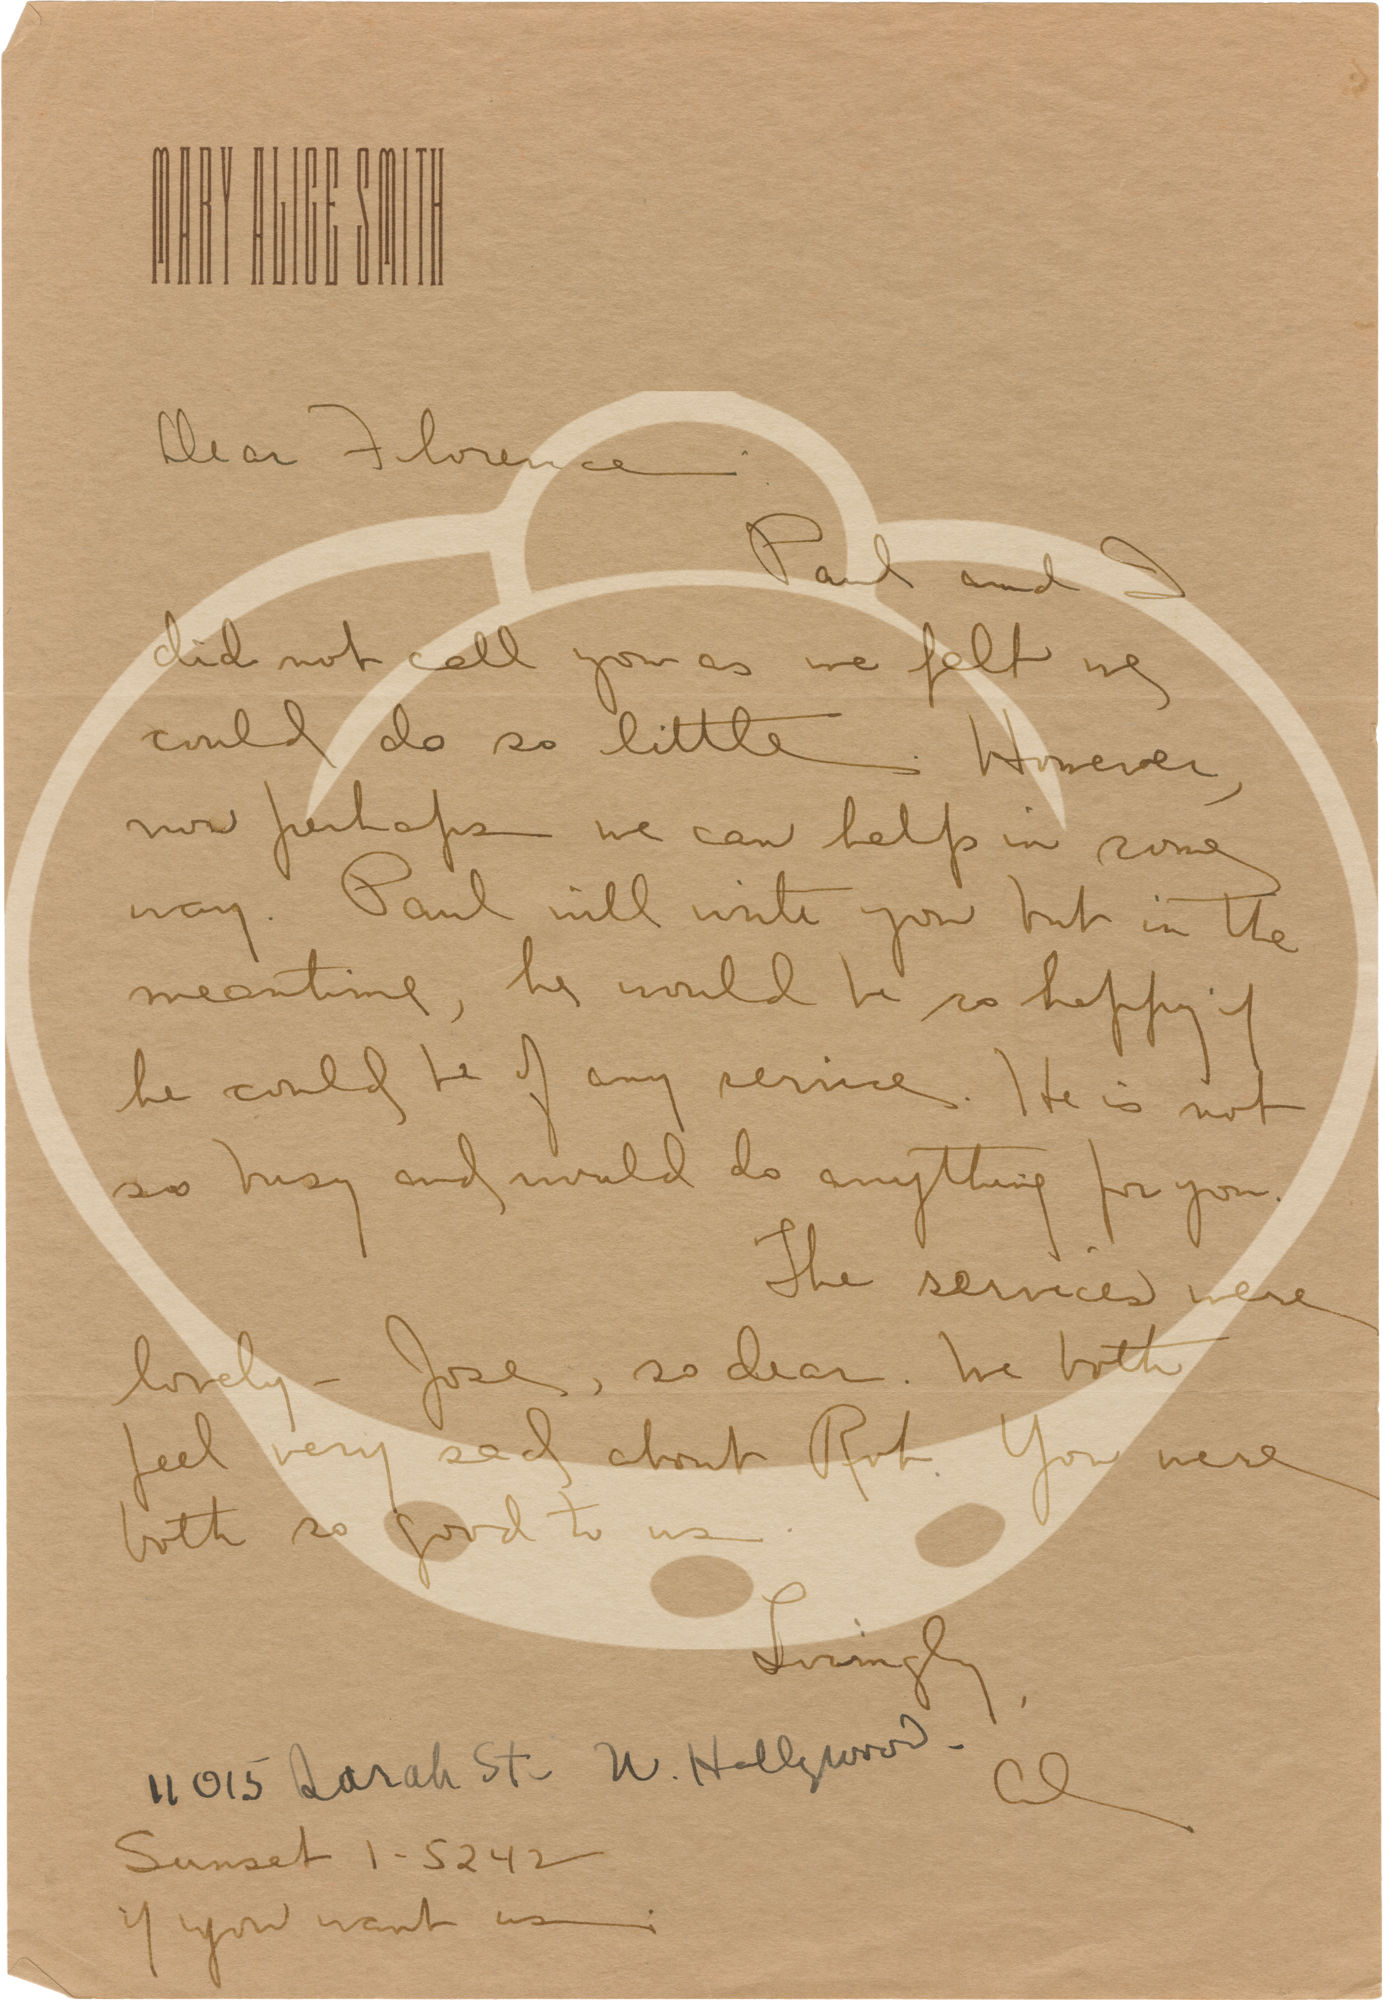 MARY ALICE SMITH
Dear Florence.
Paul and I
did not call you as we felt we
could do so little. However,
now perhaps we can help in some
way. Paul will write you but in the
meantime, he would be so happy if
he could be of any service. He is not
so busy and would do anything for you.
The services were
lovely - Jose, so dear. We both
feel very sad about Rob. You were
both so good to us.
Lovingly,
11015 Sarah St. N. Hollywood -
Sunset 1-5242
if you want us.